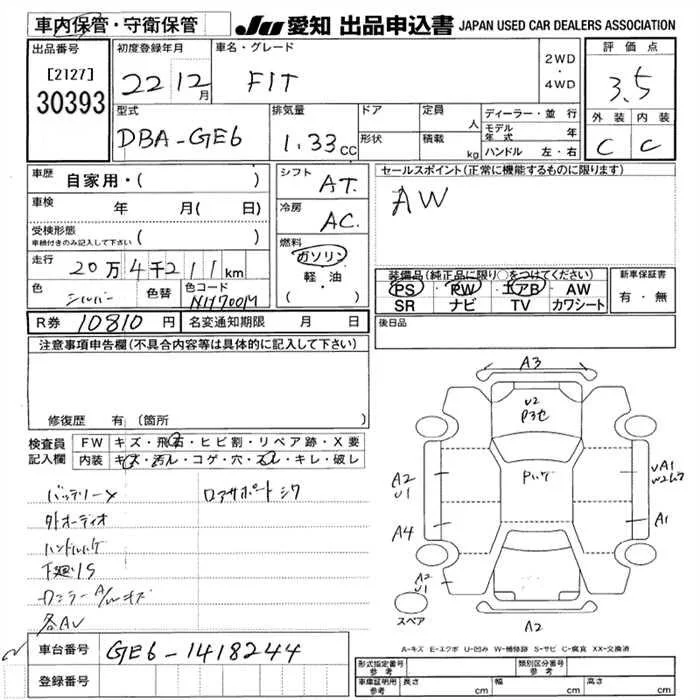 車内保管・守衛保管
JU 愛知 出品申込書 JAPAN USED CAR DEALERS ASSOCIATION
出品番号
[2127]
30393
初度登録年月
22 12月
車名・グレード
FIT
2WD
・
4WD
評価点
3.5
外装 内装
C C
型式
DBA-GE6
排気量
1.33cc
ドア
形状
定員
人
積載
kg
ディーラー・並行
モデル年式 年
ハンドル 左・右
車歴
自家用・( )
車検
年 月(日)
受検形態
車検付きのみ記入して下さい ( )
走行
20万4千211km
色
シルバー
色替
色コード
NH700M
シフト
AT.
冷房
AC.
燃料
ガソリン
・
軽・油
( )
セールスポイント(正常に機能するものに限ります)
AW
装備品(純正品に限り○をつけてください)
PS・PW・エアB・AW
SR ナビ TV カワシート
新車保証書
有・無
R券 10810円
名変通知期限 月 日
後日品
注意事項申告欄(不具合内容等は具体的に記入して下さい)
修復歴 有(箇所
検査員
記入欄
FW キズ・飛石・ヒビ割・リペア跡・X要
内装 キズ・汚れ・コゲ・穴・スレ・キレ・破レ
バッテリーX
外オーディオ
ハンドルハゲ
下廻りS
ロアサポートシワ
各AU
A3
U2
P3セ
Pハゲ
A2
U1
A4
A1
W2
A2
U1
スペア
A2
A-キズ E-エクボ U-凹み W-補修跡 S-サビ C-腐食 XX-交換済
車台番号
GE6-1418244
登録番号
形式指定番号
参考
類別区分番号
参考
車庫証明用
参考
長さ cm
幅 cm
高さ cm